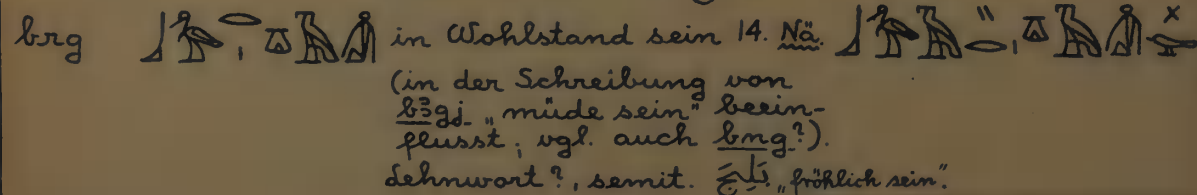 brg in Wohlstand sein 14. Nä.
(in der Schreibung von
bꜣgj „müde sein" beein-
flusst, vgl. auch bng?).
Lehnwort?, semit. بَلِجَ „fröhlich sein".